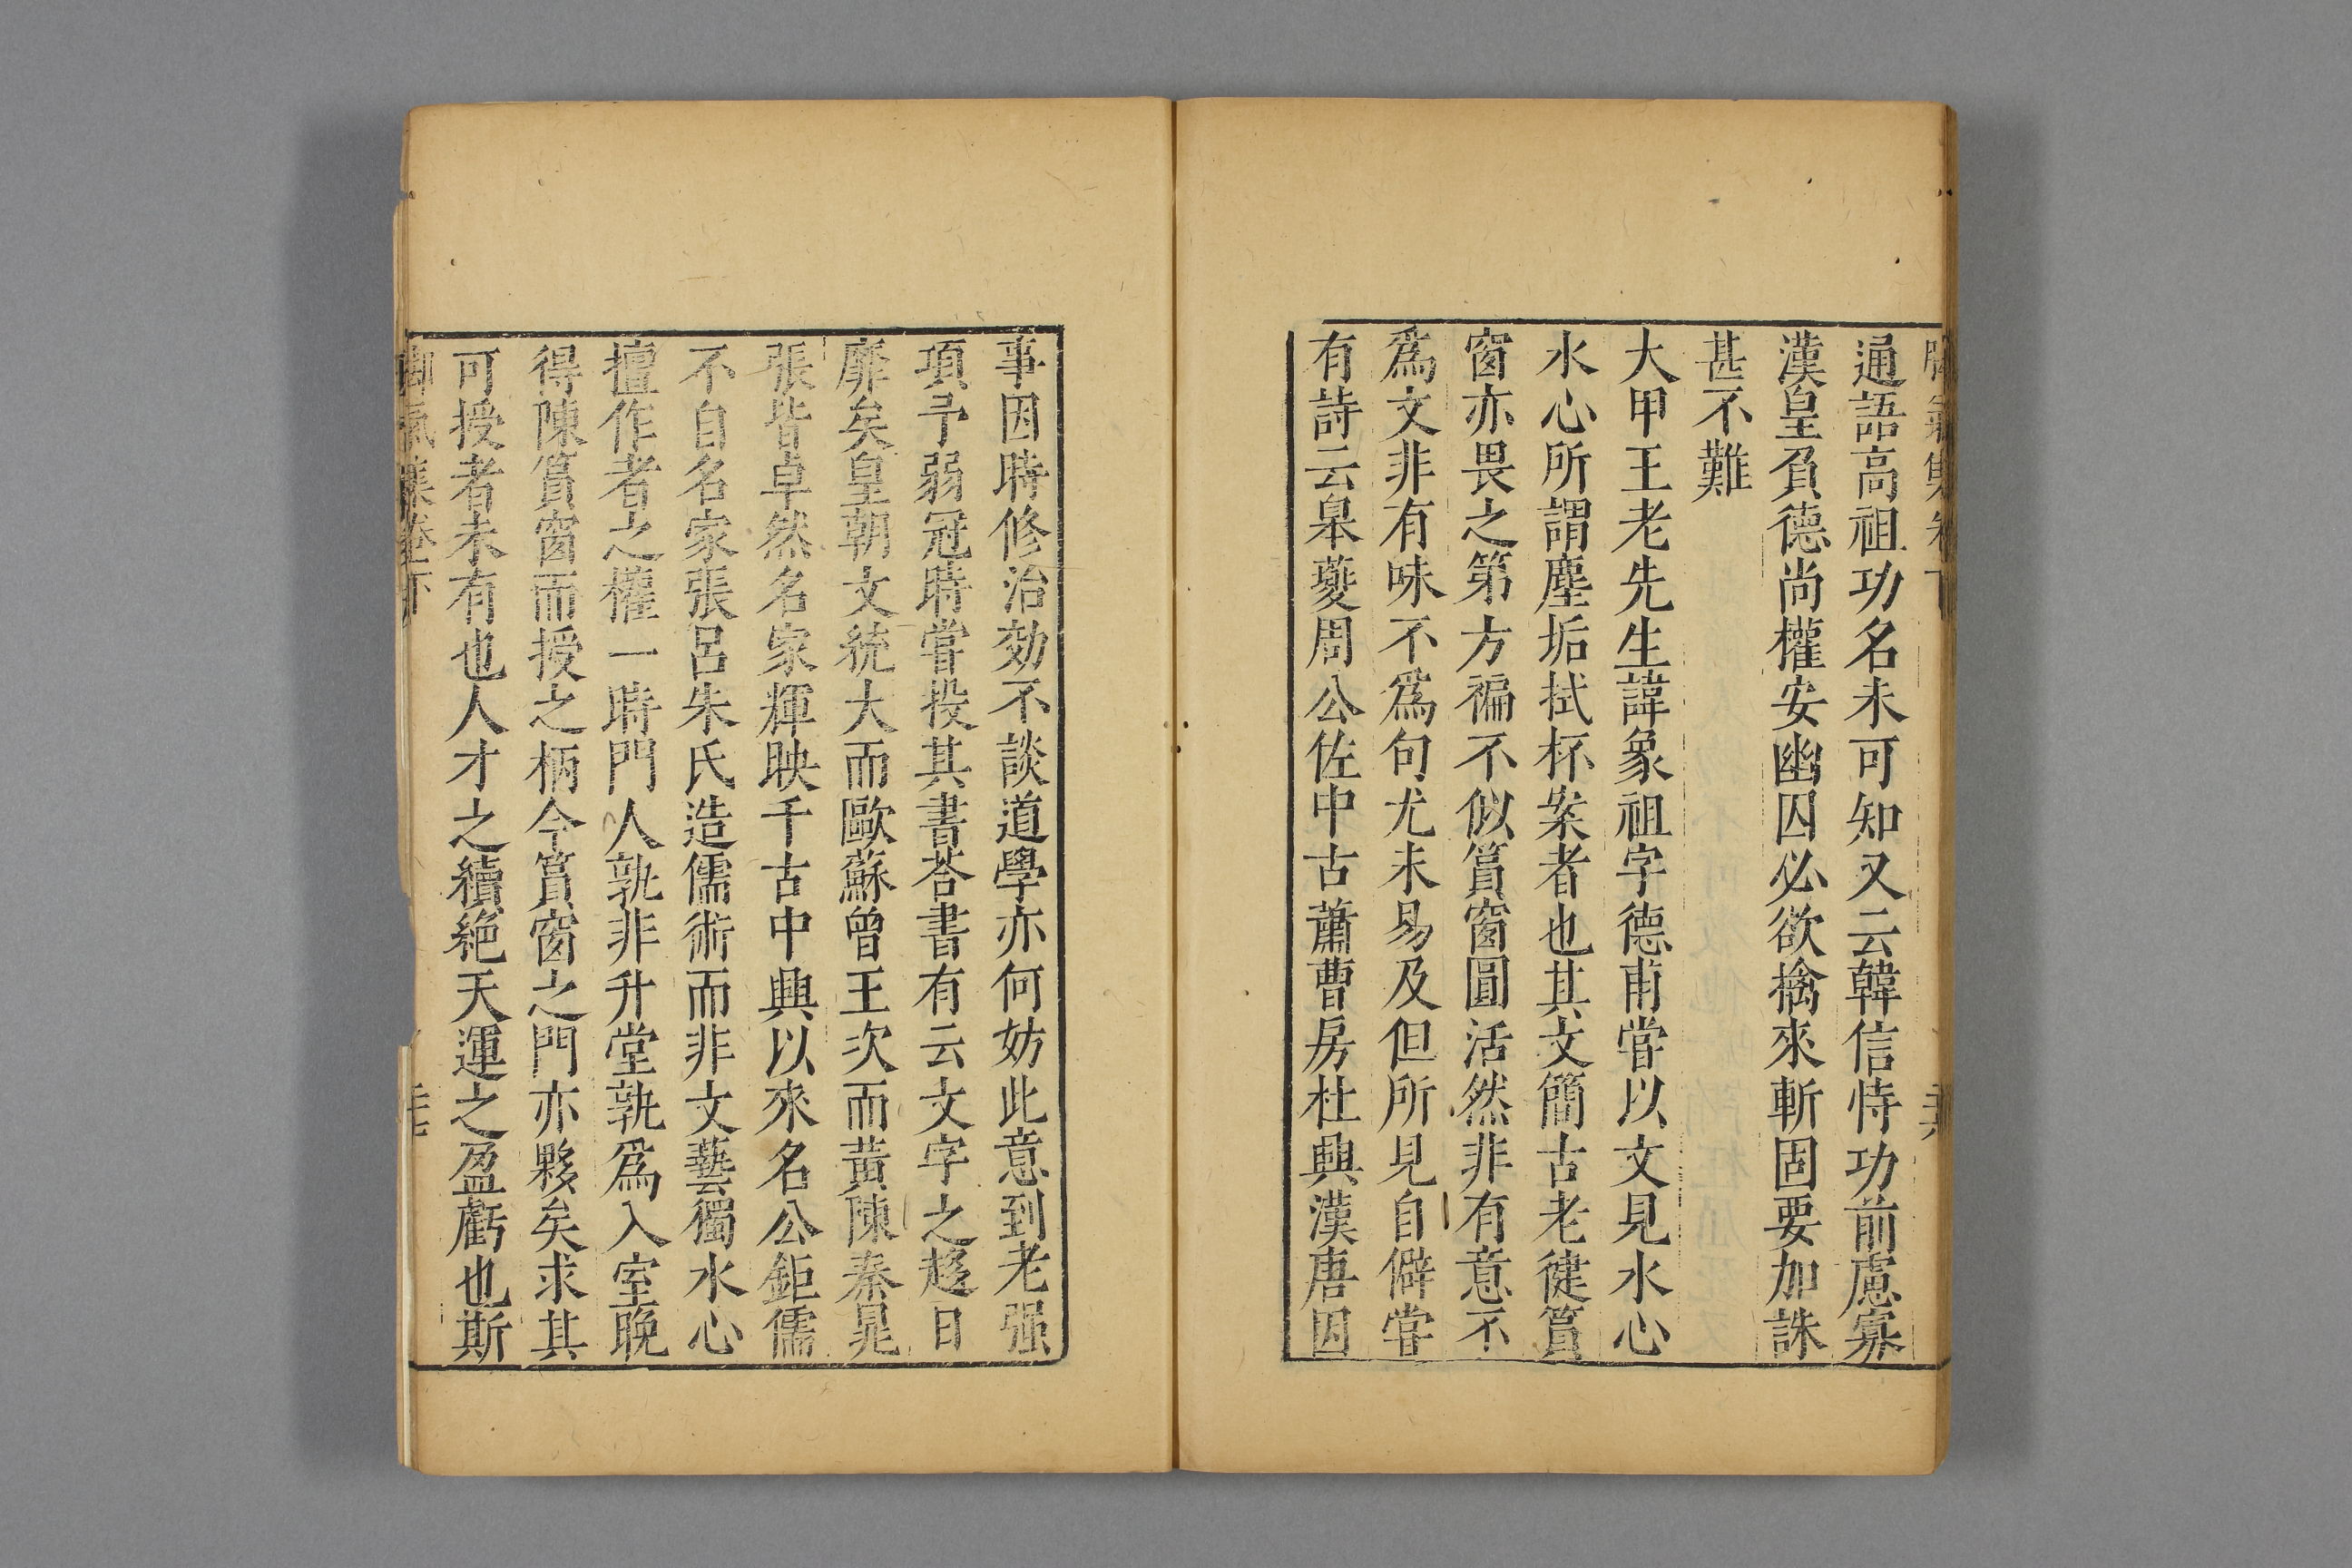 脚氣集卷下
通語高祖功名未可知又云韓信恃功前慮寡
漢皇負德尚權安幽囚必欲擒來斬固要加誅
甚不難
大甲王老先生諱象祖字德甫嘗以文見水心
水心所謂塵垢拭杯案者也其文簡古老健篔
窗亦畏之第方褊不似篔窗圓活然非有意不
爲文非有味不爲句尤未易及但所見自僻嘗
有詩云皋夔周公佐中古蕭曹房杜興漢唐因
事因時修治効不談道學亦何妨此意到老强
項予弱冠時嘗投其書荅書有云文字之趍日
靡矣皇朝文統大而歐蘇曾王次而黃陳秦晁
張皆卓然名家輝映千古中興以來名公鉅儒
不自名家張呂朱氏造儒術而非文藝獨水心
擅作者之權一時門人孰非升堂孰爲入室晚
得陳篔窗而授之柄今篔窗之門亦夥矣求其
可授者未有也人才之續絕天運之盈虧也斯
脚氣集卷下